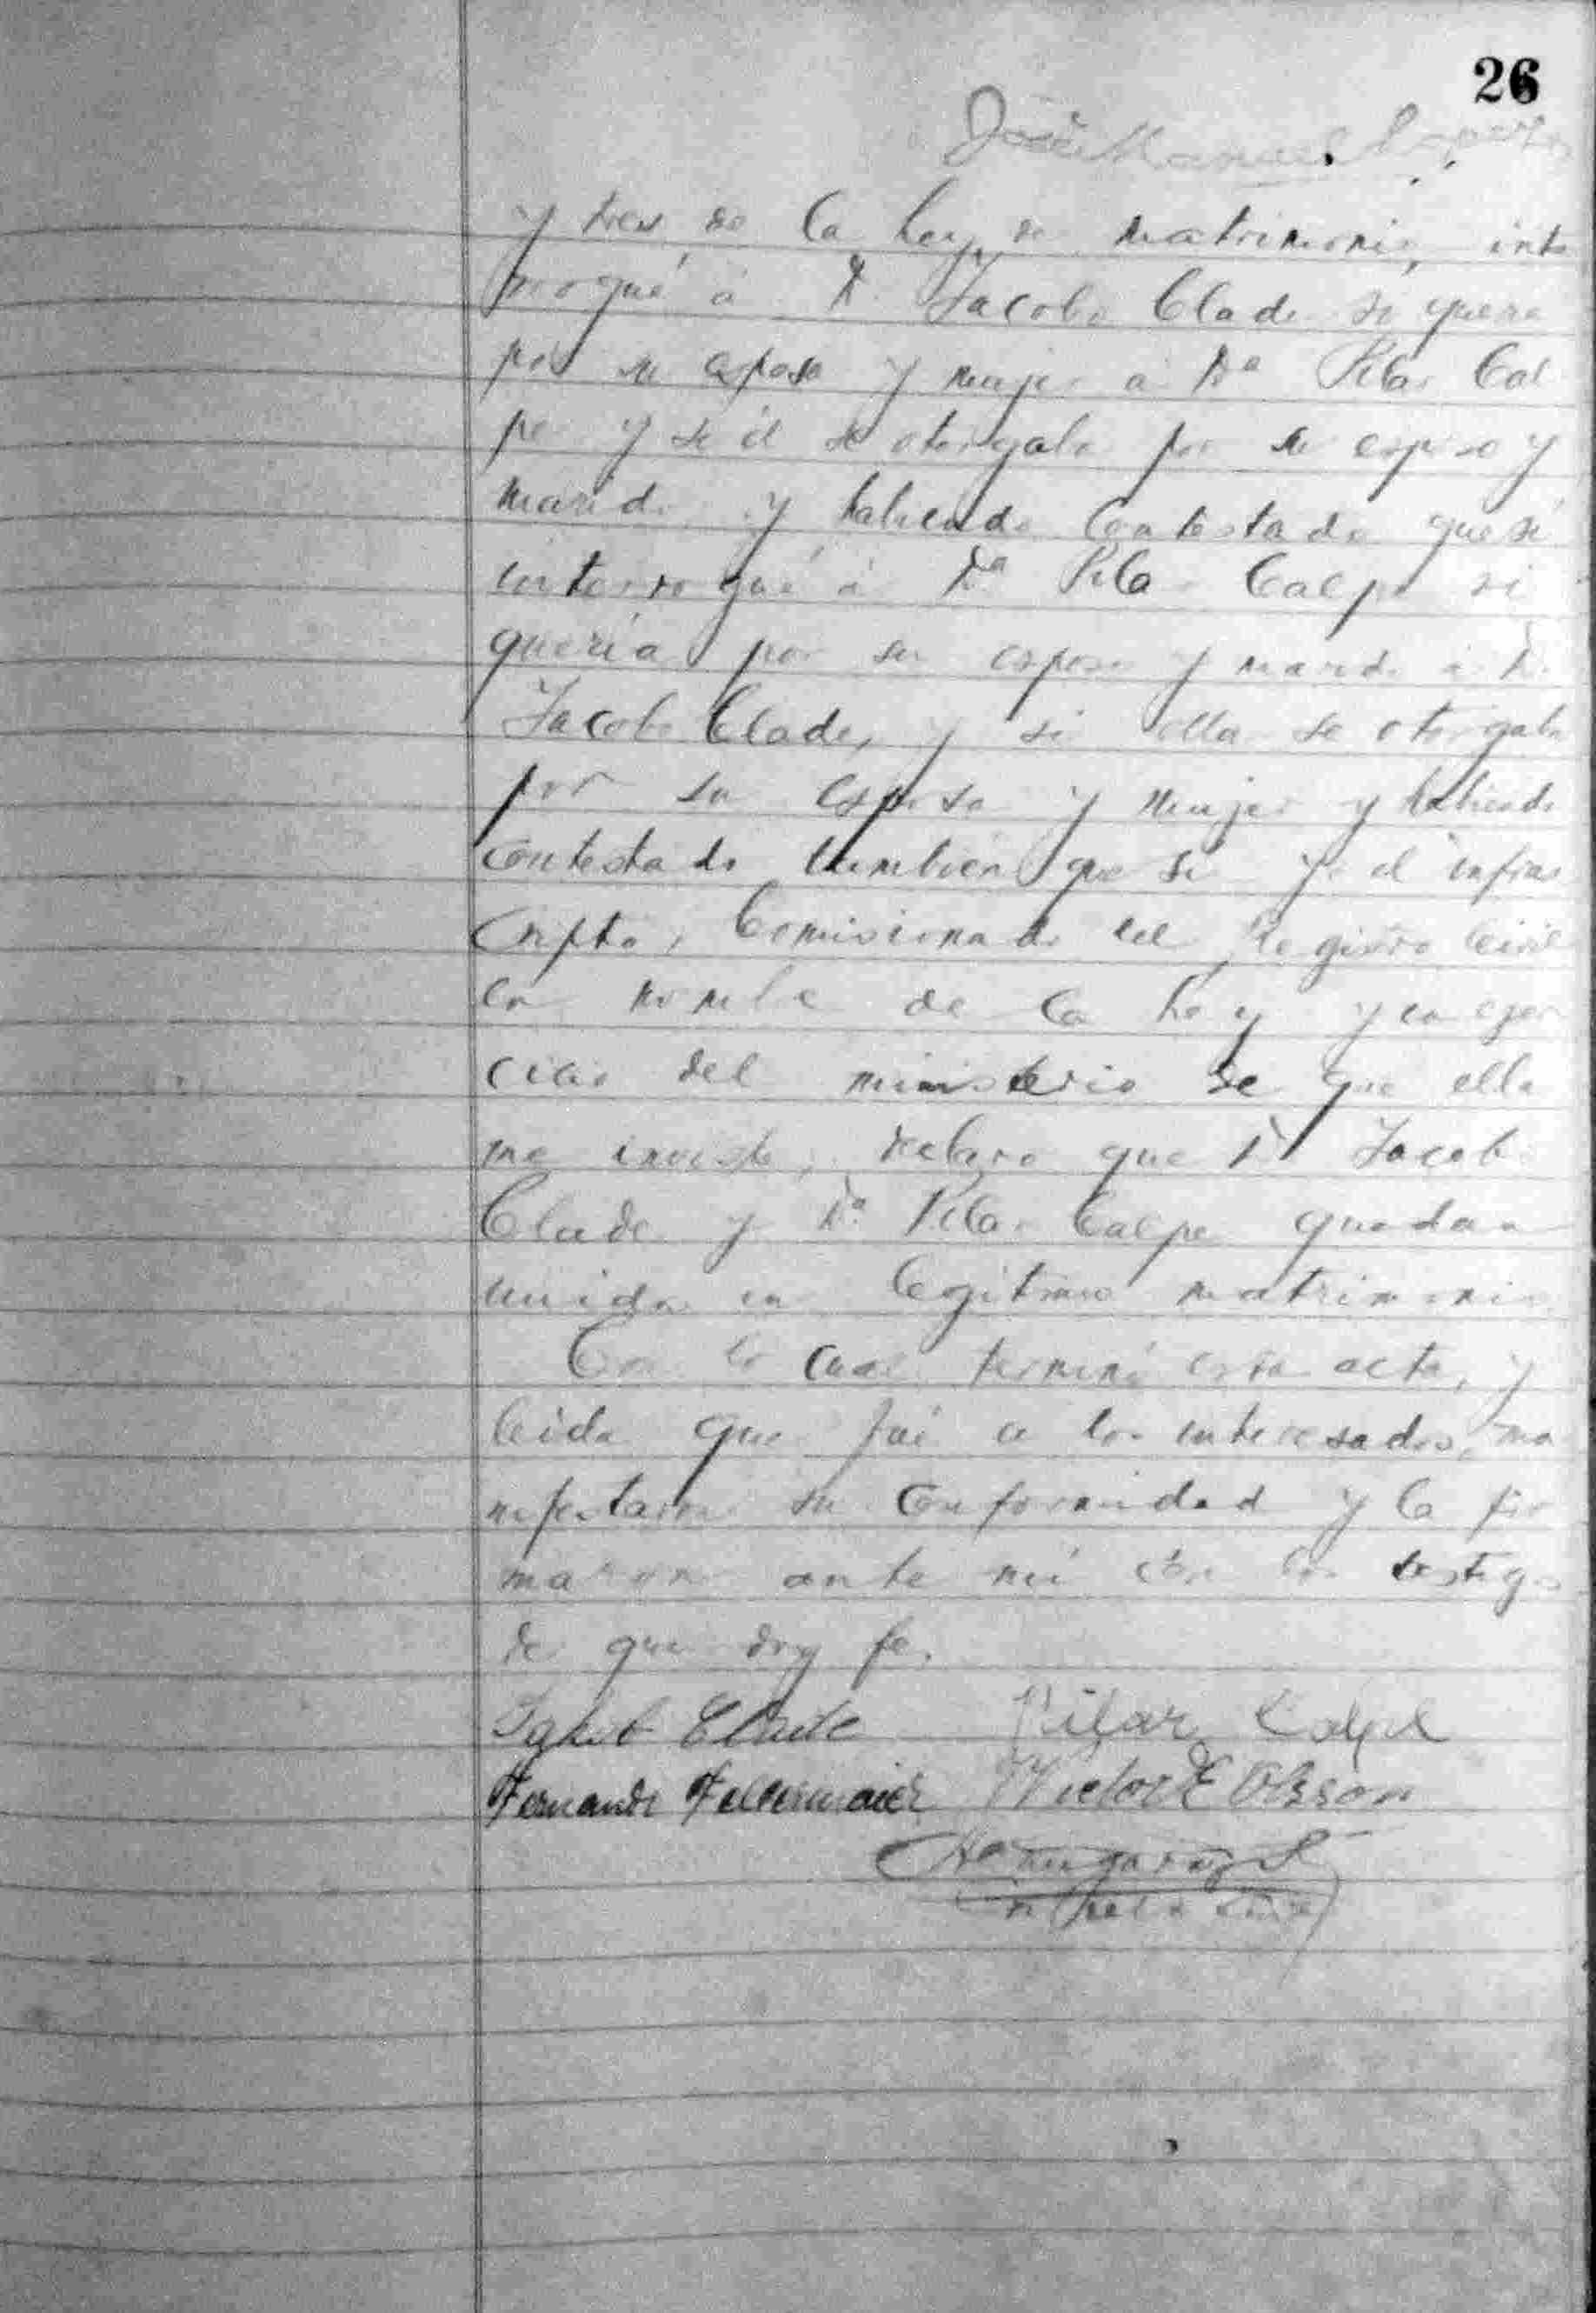 26
José Manuel
y tres de la Ley de matrimonio, inte
rrogué á Dn. Jacobo Clade si quere
por su esposa y mujer a Da Pilar Cal
pe y si él se otorgaba por su esposo y
marido y habiendo contestado que sí
interrogué á Da. Pilar Calpe si
quería por su esposo y marido á Dn.
Jacobo Clade, y si ella se otorgaba
por su esposa y mujer y habiendo
contestado tambien que si yo el infras
cripto, Comisionado del Registro Civil
en nombre de la Ley y en ejer
cicio del ministerio de que ella
me inviste, declaro que Dn Jacobo
Clade y Da. Pilar Calpe quedan
unidos en legitimo matrimonio
Con lo cual terminó esta acta, y
leida que fué a los interesados, ma
nifestaron su conformidad y la fir
maron ante mí con los testigos
de que doy fe.
Jakob Clade Pilar Calpe
Fernando Victor E Olsson